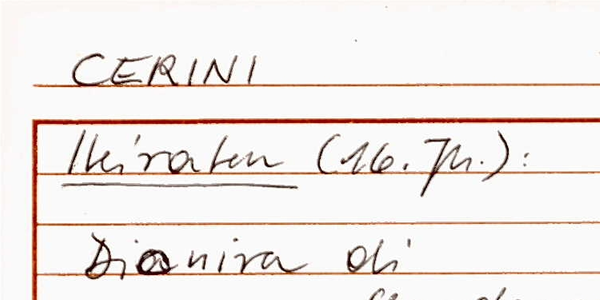 CERINI
Heiraten (16. Jh.):
Dianira di